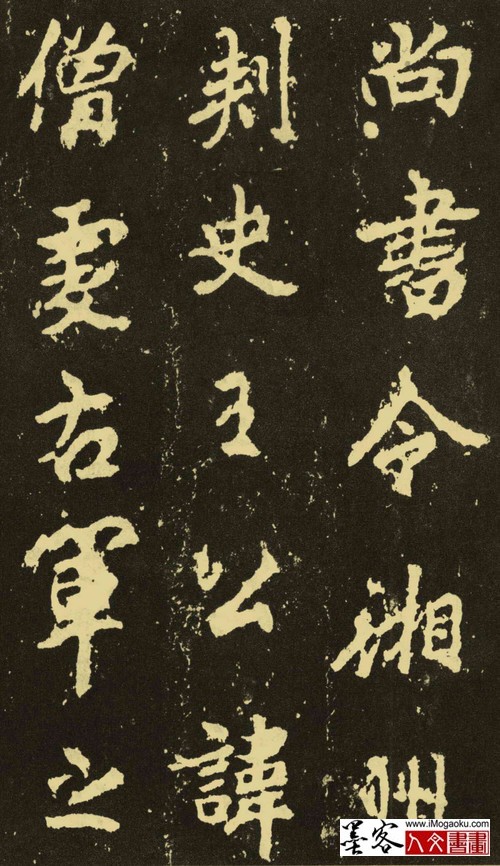 尚書令湘州
刺史王公諱
僧虔右軍之
墨客
www.iMogaoku.com
人文書畫